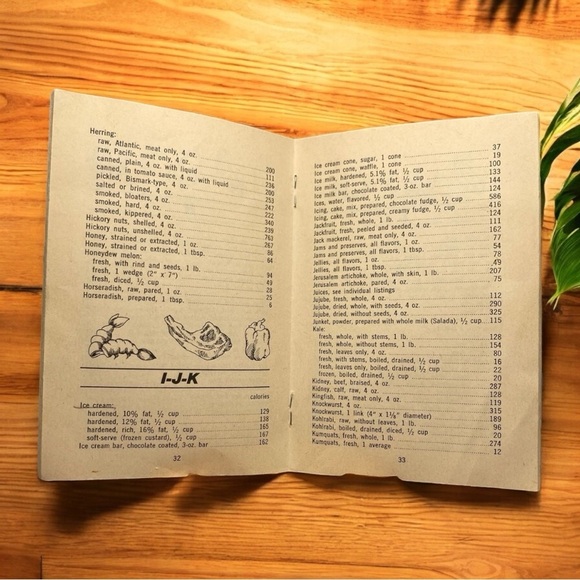 Herring:
raw, Atlantic, meat only, 4 oz. 200
raw, Pacific, meat only, 4 oz. 111
canned, plain, 4 oz. with liquid 236
canned, in tomato sauce, 4 oz. with liquid 200
pickled, Bismark-type, 4 oz. 253
salted or brined, 4 oz. 247
smoked, bloaters, 4 oz. 222
smoked, hard, 4 oz. 340
smoked, kippered, 4 oz. 239
Hickory nuts, shelled, 4 oz. 763
Hickory nuts, unshelled, 4 oz. 267
Honey, strained or extracted, 1 oz. 86
Honey, strained or extracted, 1 tbsp. 64
Honeydew melon:
fresh, with rind and seeds, 1 lb. 94
fresh, 1 wedge (2" x 7") 49
fresh, diced, ½ cup 28
Horseradish, raw, pared, 1 oz. 25
Horseradish, prepared, 1 tbsp. 6
I-J-K
calories
Ice cream:
hardened, 10% fat, ½ cup 129
hardened, 12% fat, ½ cup 138
hardened, rich, 16% fat, ½ cup 165
soft-serve (frozen custard), ½ cup 167
Ice cream bar, chocolate coated, 3-oz. bar 162
32
Ice cream cone, sugar, 1 cone 37
Ice cream cone, waffle, 1 cone 19
Ice milk, hardened, 5.1% fat, ½ cup 100
Ice milk, soft-serve, 5.1% fat, ½ cup 133
Ice milk bar, chocolate coated, 3-oz. bar 144
Ices, water, flavored, ½ cup 124
Icing, cake, mix, prepared, chocolate fudge, ½ cup 586
Icing, cake, mix, prepared, creamy fudge, ½ cup 416
Jackfruit, fresh, whole, 1 lb. 124
Jackfruit, fresh, peeled and seeded, 4 oz. 111
Jack mackerel, raw, meat only, 4 oz. 162
Jams and preserves, all flavors, 1 oz. 77
Jams and preserves, all flavors, 1 tbsp. 54
Jellies, all flavors, 1 oz. 78
Jellies, all flavors, 1 tbsp. 49
Jerusalem artichoke, whole, with skin, 1 lb. 207
Jerusalem artichoke, pared, 4 oz. 75
Juices, see individual listings
Jujube, fresh, whole, 4 oz. 112
Jujube, dried, whole, with seeds, 4 oz. 290
Jujube, dried, without seeds, 4 oz. 325
Junket, powder, prepared with whole milk (Salada), ½ cup 115
Kale:
fresh, whole, with stems, 1 lb. 128
fresh, whole, without stems, 1 lb. 154
fresh, leaves only, 4 oz.
fresh, with stems, boiled, drained, ½ cup 16
fresh, leaves only, boiled, drained, ½ cup 22
frozen, boiled, drained, ½ cup 20
Kidney, beef, braised, 4 oz. 287
Kidney, calf, raw, 4 oz.
Kingfish, raw, meat only, 4 oz. 119
Knockwurst, 4 oz. 315
Knockwurst, 1 link (4" x 1⅛" diameter) 189
Kohlrabi, raw, without leaves, 1 lb. 96
Kohlrabi, boiled, drained, diced, ½ cup 20
Kumquats, fresh, whole, 1 lb. 274
Kumquats, fresh, 1 average 12
33